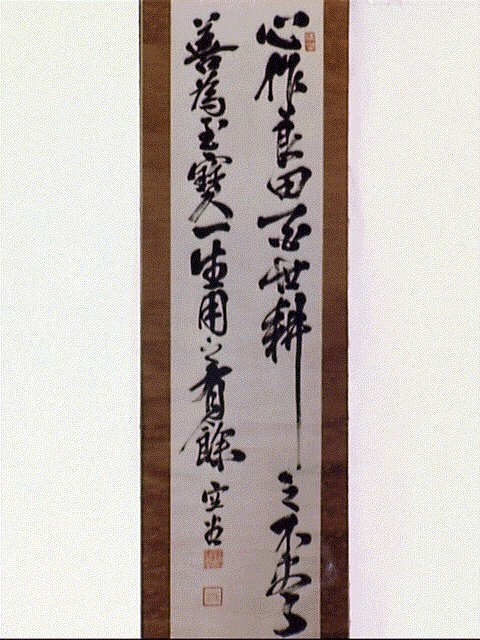 心作良田百世耕之不盡
善為至寶一生用之有餘
空谷